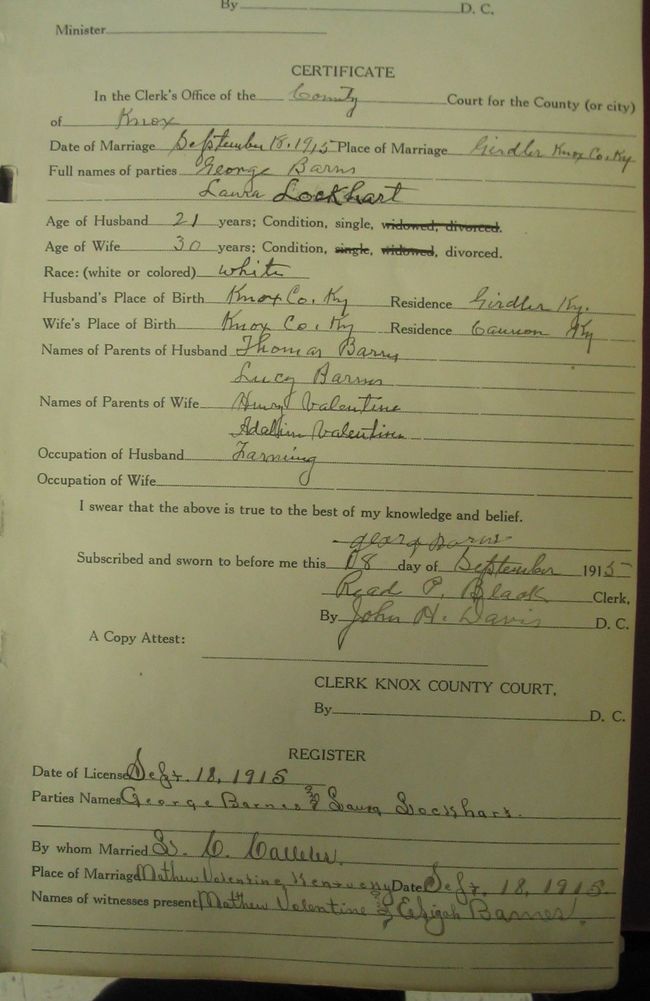 By D. C.
Minister
CERTIFICATE
In the Clerk's Office of the County Court for the County (or city)
of Knox
Date of Marriage September 18, 1915 Place of Marriage Girdler Knox Co. Ky
Full names of parties George Barns
Laura Lockhart
Age of Husband 21 years; Condition, single, widowed, divorced.
Age of Wife 30 years; Condition, single, widowed, divorced.
Race: (white or colored) white
Husband's Place of Birth Knox Co. Ky Residence Girdler Ky.
Wife's Place of Birth Knox Co. Ky Residence Ky
Names of Parents of Husband Thomas Barns
Lucy Barns
Names of Parents of Wife Henry Valentine
Valentine
Occupation of Husband Farming
Occupation of Wife
I swear that the above is true to the best of my knowledge and belief.
georg barns
Subscribed and sworn to before me this 18 day of September 1915
Read P. Black Clerk,
By John H. Davis D. C.
A Copy Attest:
CLERK KNOX COUNTY COURT,
By D. C.
REGISTER
Date of License Sept. 18, 1915
Parties Names George Barnes & Laura Lockhart.
By whom Married
Place of Marriage Mathew Valentine Kentucky Date Sept. 18, 1915.
Names of witnesses present Mathew Valentine & Elijah Barnes.